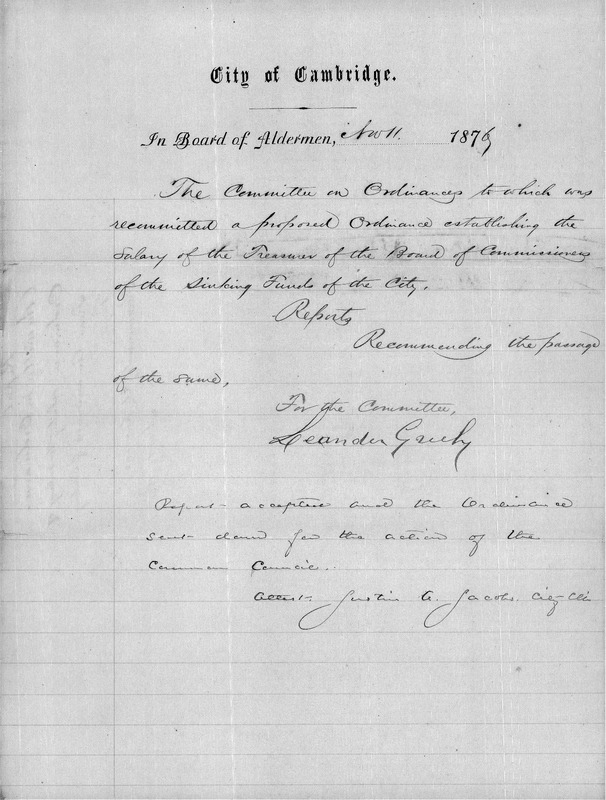 City of Cambridge.
In Board of Aldermen, Nov 11. 187
The Committee on Ordinances to which was
recommitted a proposed Ordinance establishing the
Salary of the Treasurer of the Board of Commissioners
of the Sinking Funds of the City,
Reports
Recommending the passage
of the same,
For the Committee,
Leander Greely
Report accepted and the Ordinance
sent down for the action of the
Common Council.
Attest Justin A. Jacobs. City Clk